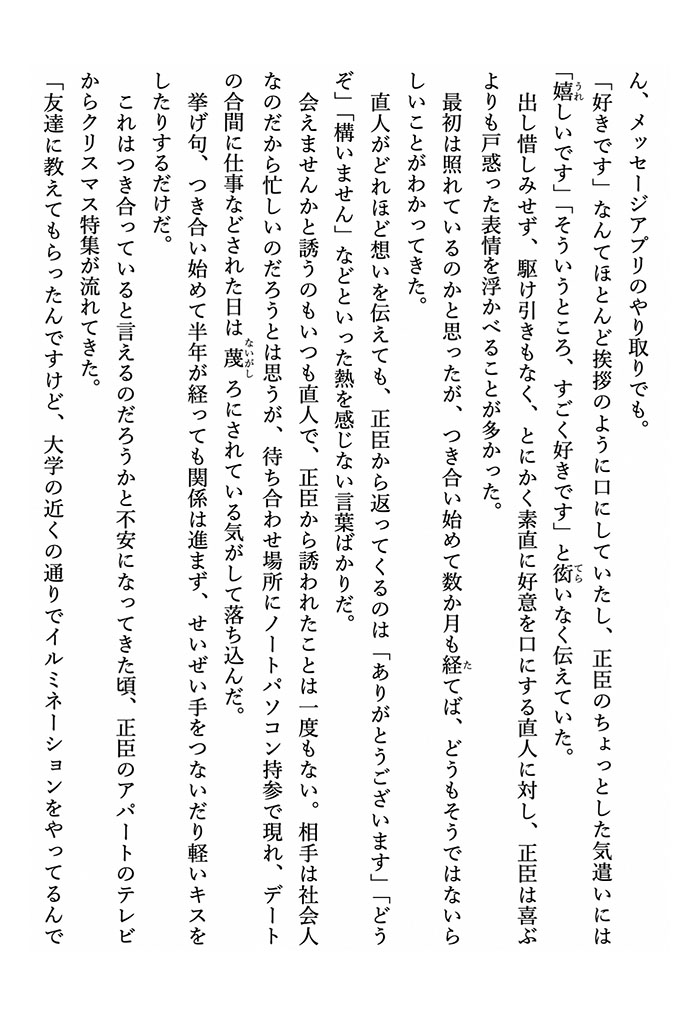 ん、メッセージアプリのやり取りでも。
「好きです」なんてほとんど挨拶のように口にしていたし、正臣のちょっとした気遣いには
「嬉しいです」「そういうところ、すごく好きです」と衒いなく伝えていた。
出し惜しみせず、駆け引きもなく、とにかく素直に好意を口にする直人に対し、正臣は喜ぶ
よりも戸惑った表情を浮かべることが多かった。
最初は照れているのかと思ったが、つき合い始めて数か月も経てば、どうもそうではないら
しいことがわかってきた。
直人がどれほど想いを伝えても、正臣から返ってくるのは「ありがとうございます」「どう
ぞ」「構いません」などといった熱を感じない言葉ばかりだ。
会えませんかと誘うのもいつも直人で、正臣から誘われたことは一度もない。相手は社会人
なのだから忙しいのだろうとは思うが、待ち合わせ場所にノートパソコン持参で現れ、デート
の合間に仕事などされた日は蔑ろにされている気がして落ち込んだ。
挙げ句、つき合い始めて半年が経っても関係は進まず、せいぜい手をつないだり軽いキスを
したりするだけだ。
これはつき合っていると言えるのだろうかと不安になってきた頃、正臣のアパートのテレビ
からクリスマス特集が流れてきた。
「友達に教えてもらったんですけど、大学の近くの通りでイルミネーションをやってるんで